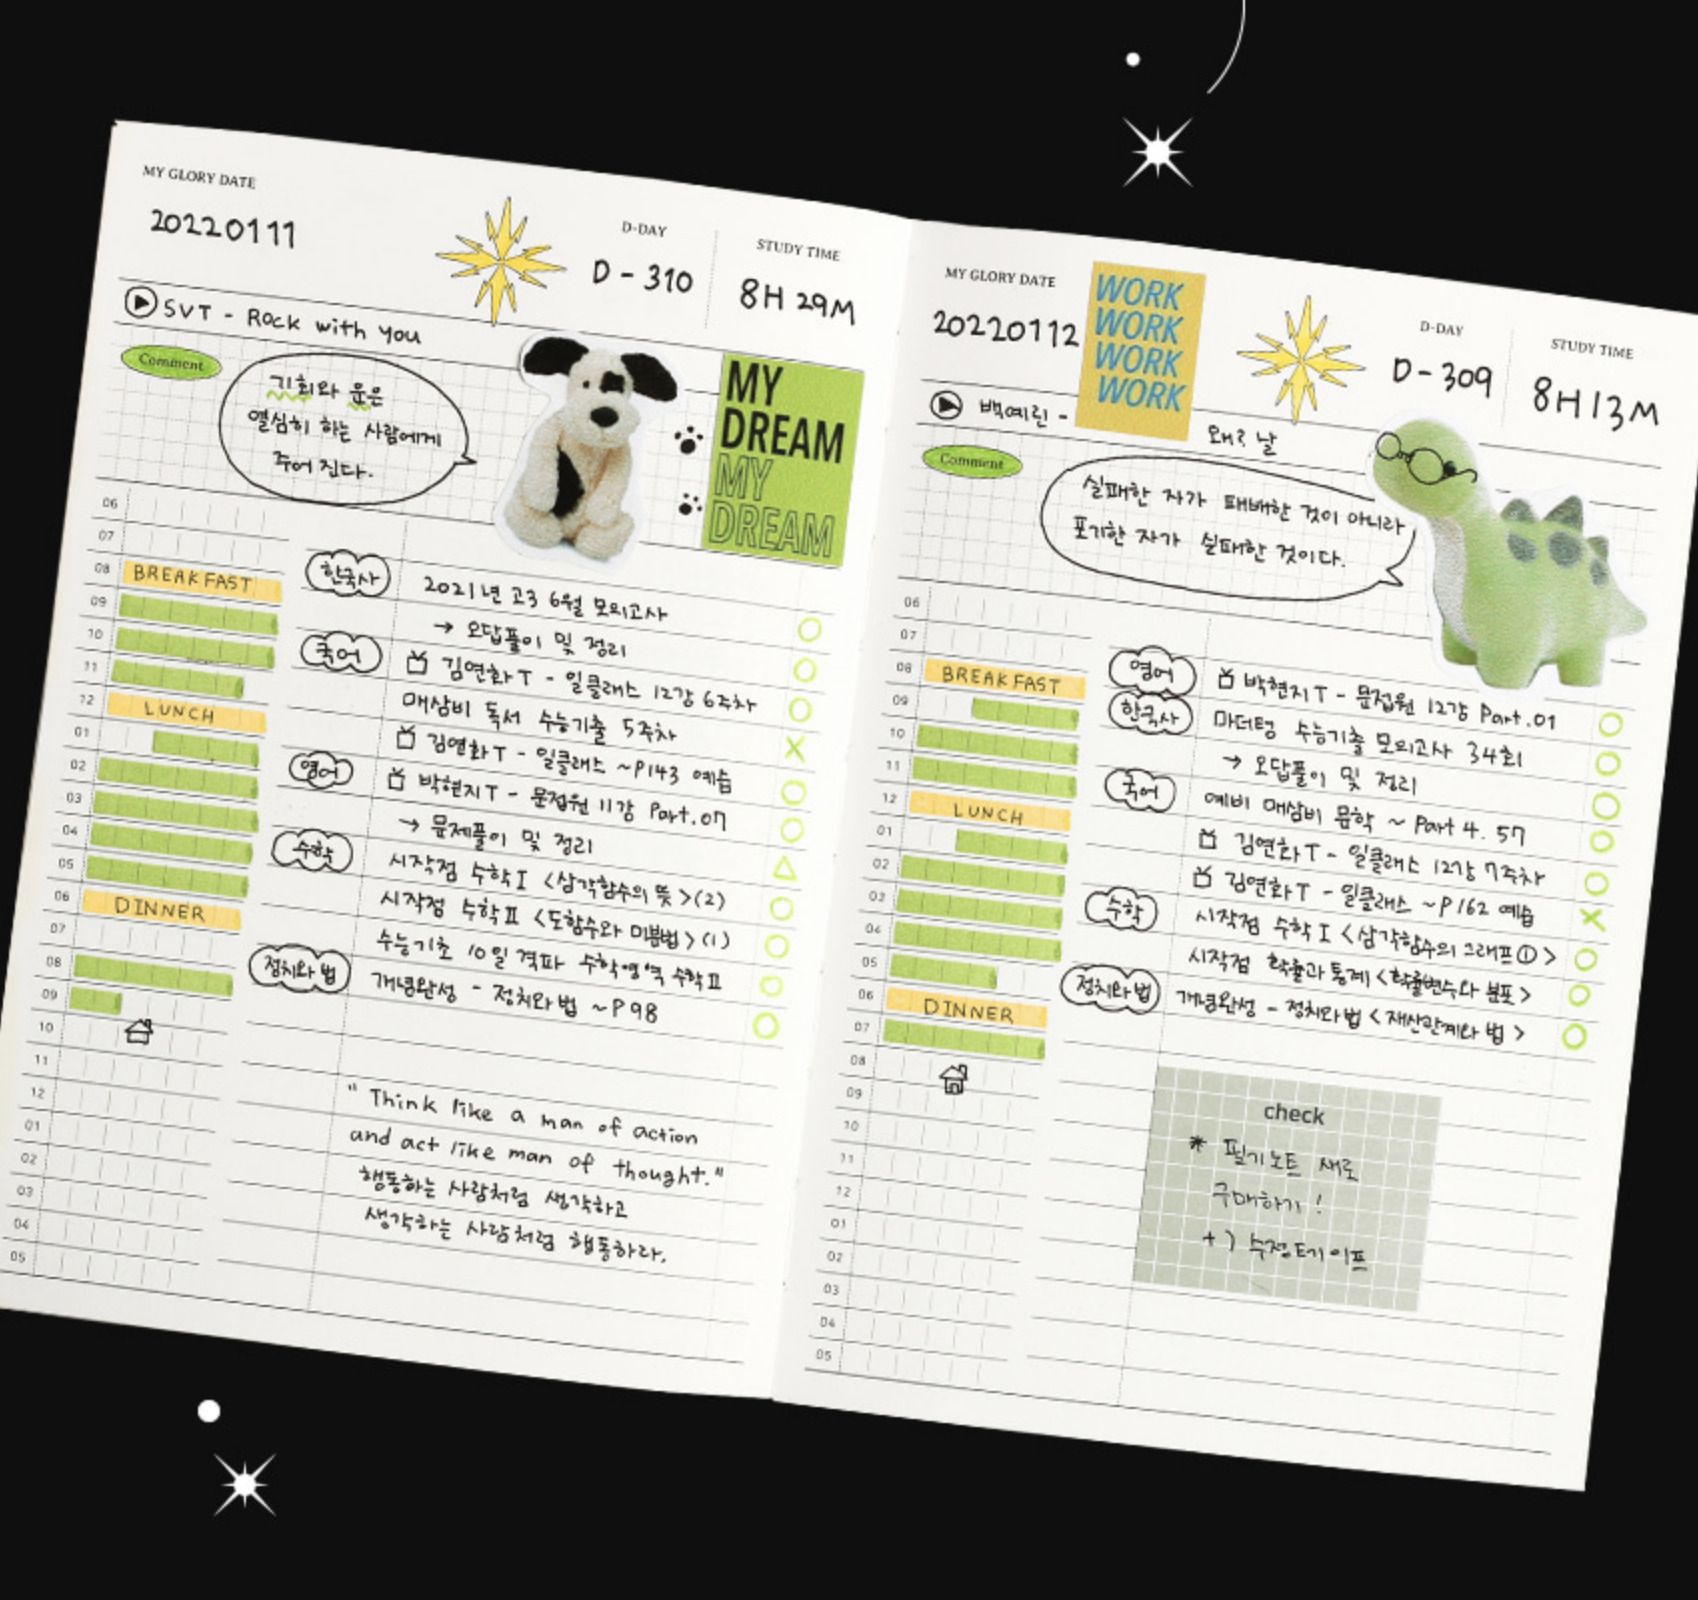 MY GLORY DATE
20220111
D-DAY
D-310
STUDY TIME
8H 29M
SVT - Rock with you
Comment
기회와 운은
열심히 하는 사람에게
주어 진다.
MY
DREAM
MY
DREAM
06
07
08 BREAKFAST
09
10
11
12 LUNCH
01
02
03
04
05
06 DINNER
07
08
09
10
11
12
01
02
03
04
05
한국사 2021년 고3 6월 모의고사
→ 오답풀이 및 정리
국어 김연화T - 일클래스 12강 6주차
매삼비 독서 수능기출 5주차
김연화T - 일클래스 ~P143 예습
영어 박현지T - 문접원 11강 Part.07
→ 문제풀이 및 정리
수학 시작점 수학I <삼각함수의 뜻>(2)
시작점 수학II <도함수와 미분법>(1)
수능기초 10일 격파 수학영역 수학II
정치와 법 개념완성 - 정치와 법 ~P98
"Think like a man of action
and act like man of thought."
행동하는 사람처럼 생각하고
생각하는 사람처럼 행동하라.
MY GLORY DATE
20220112
WORK
WORK
WORK
WORK
D-DAY
D-309
STUDY TIME
8H 13M
백예린 -
날
Comment
실패한 자가 패배한 것이 아니라
포기한 자가 실패한 것이다.
06
07
08 BREAKFAST
09
10
11
12 LUNCH
01
02
03
04
05
06 DINNER
07
08
09
10
11
12
01
02
03
04
05
영어 박현지T - 문접원 12강 Part.01
한국사 마더텅 수능기출 모의고사 34회
→ 오답풀이 및 정리
국어 예비 매삼비 문학 ~ Part 4. 57
김연화T - 일클래스 12강 7주차
김연화T - 일클래스 ~P162 예습
수학 시작점 수학I <삼각함수의 그래프①>
시작점 확률과 통계 <확률변수와 분포>
정치와 법 개념완성 - 정치와 법 <재산관계와 법>
check
* 필기노트 새로
구매하기!
+) 수정테이프